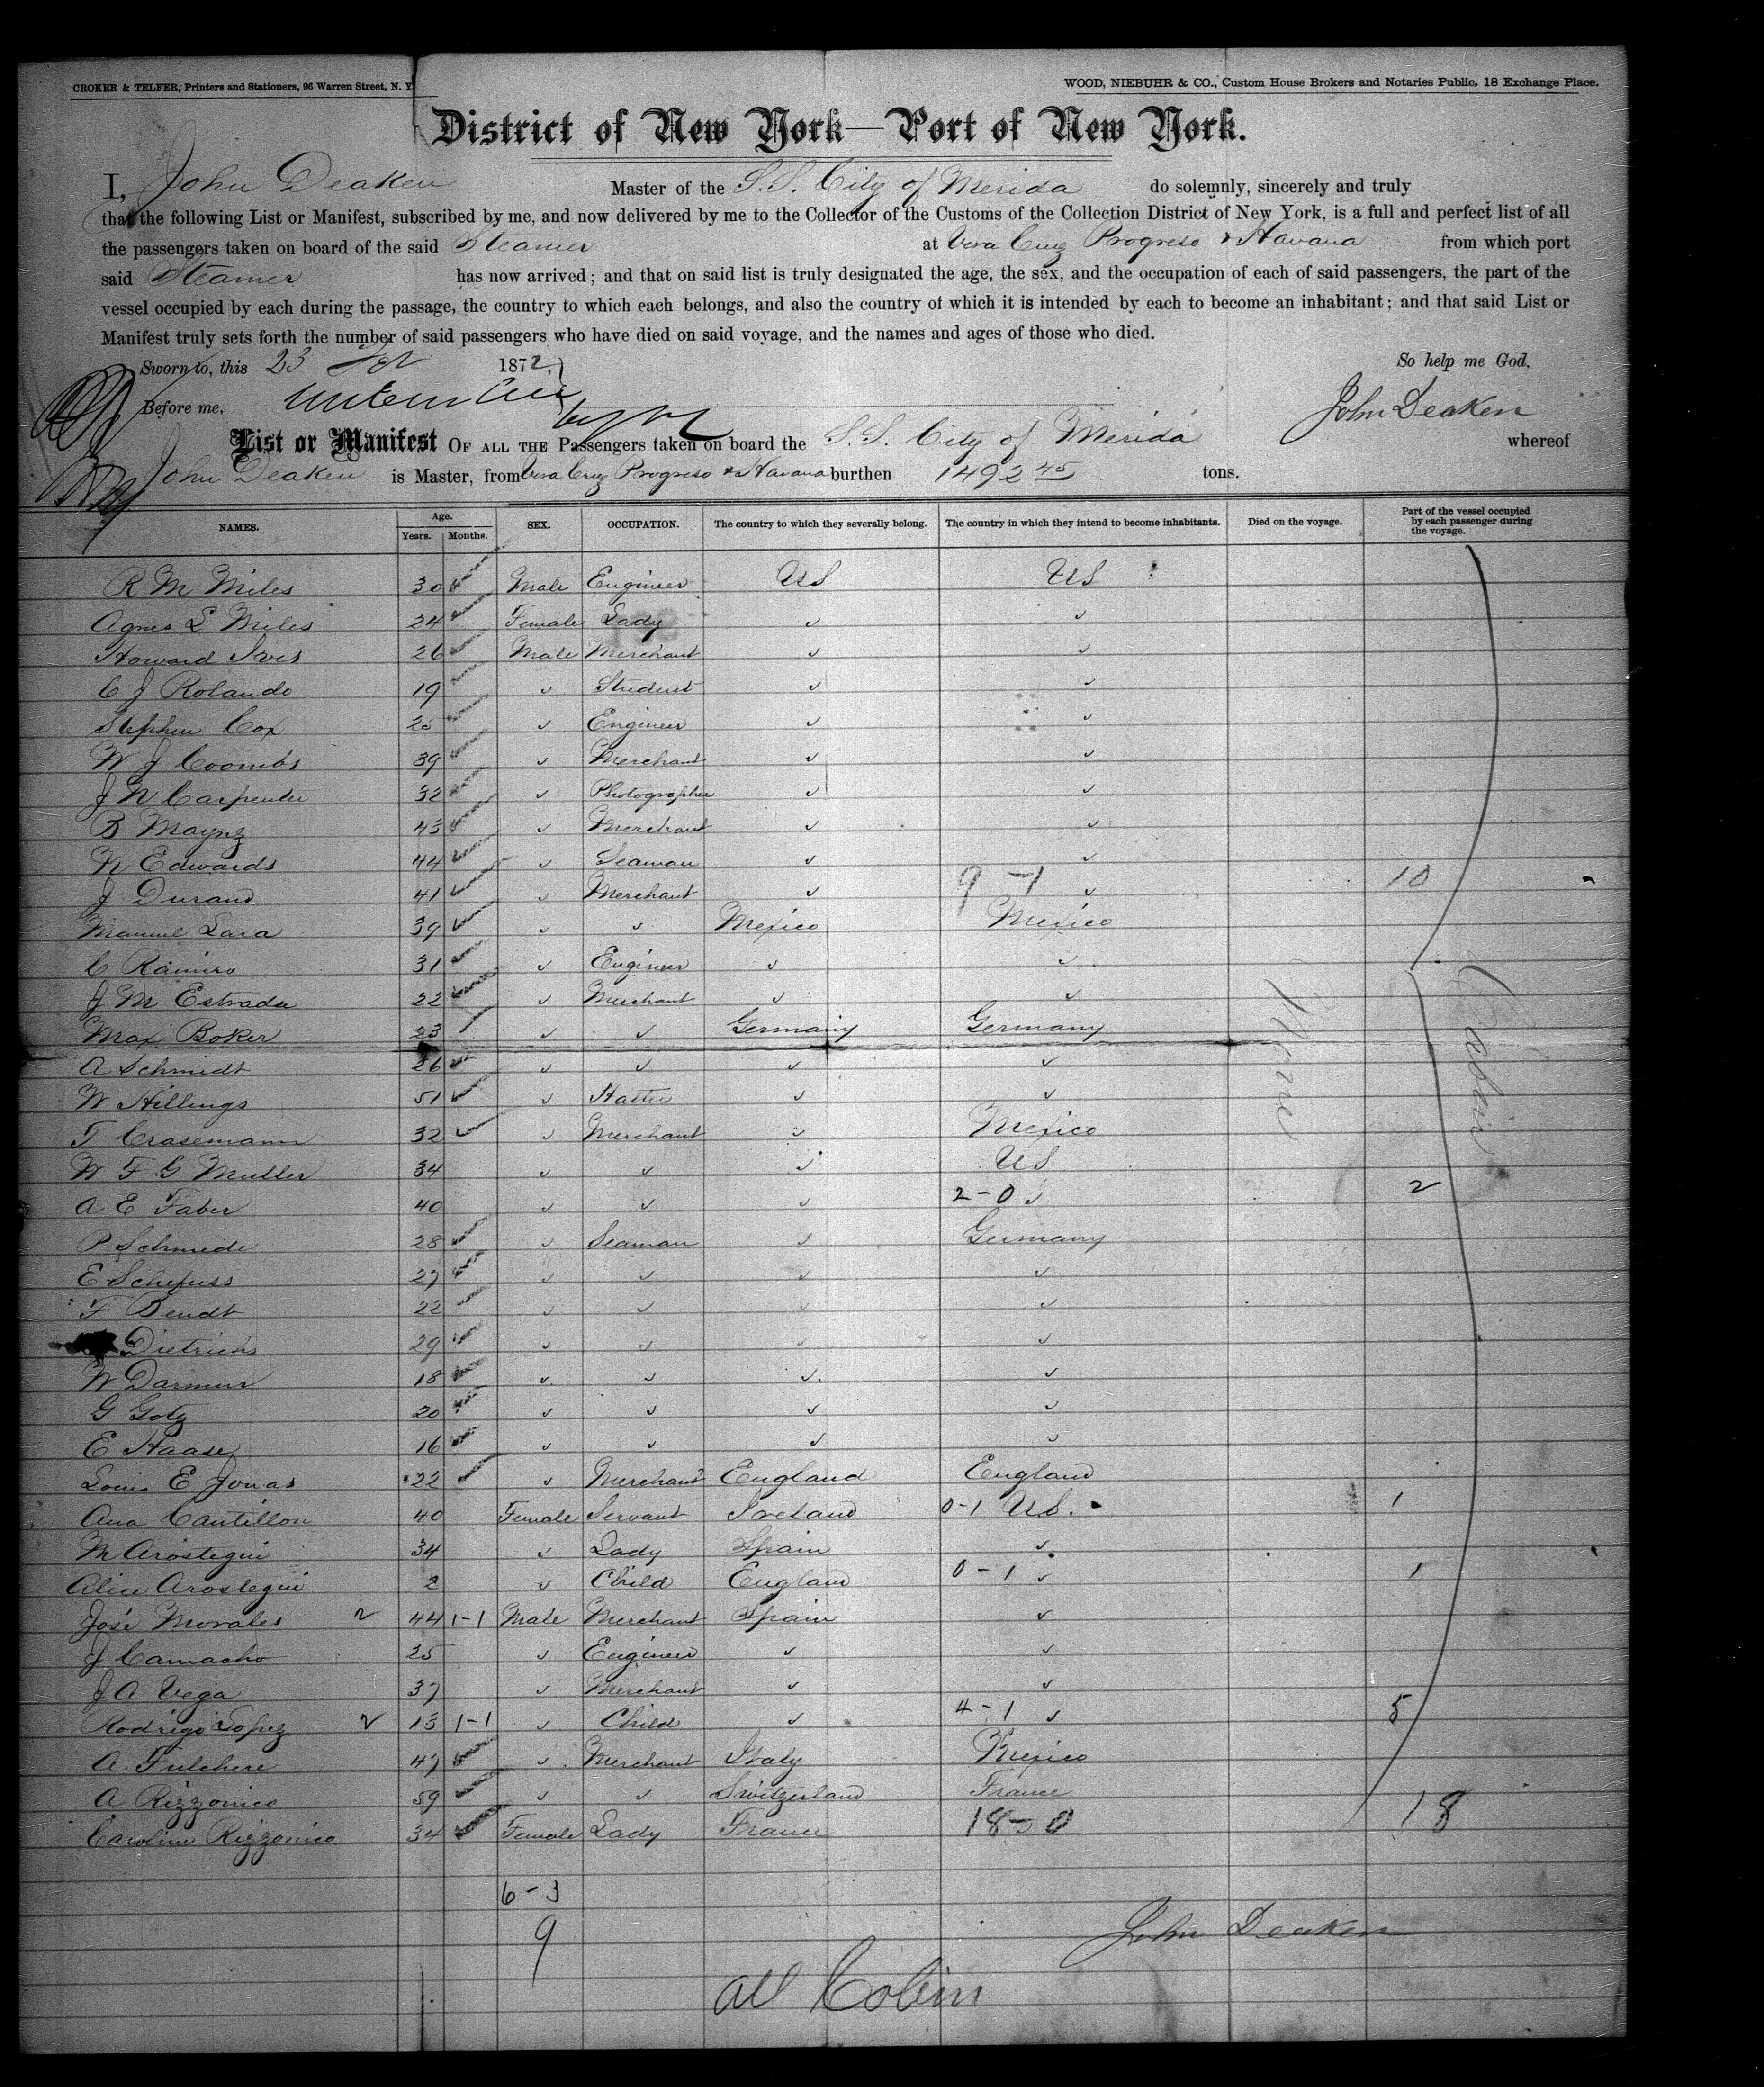 CROKER & TELFER, Printers and Stationers, 96 Warren Street, N. Y.
WOOD, NIEBUHR & CO., Custom House Brokers and Notaries Public, 18 Exchange Place.
District of New York—Port of New York.
I, John Deaken Master of the S.S. City of Merida do solemnly, sincerely and truly
that the following List or Manifest, subscribed by me, and now delivered by me to the Collector of the Customs of the Collection District of New York, is a full and perfect list of all
the passengers taken on board of the said Steamer at Vera Cruz Progreso & Havana from which port
said Steamer has now arrived; and that on said list is truly designated the age, the sex, and the occupation of each of said passengers, the part of the
vessel occupied by each during the passage, the country to which each belongs, and also the country of which it is intended by each to become an inhabitant; and that said List or
Manifest truly sets forth the number of said passengers who have died on said voyage, and the names and ages of those who died.
Sworn to, this 23 1872, So help me God,
Before me, John Deaken
List or Manifest OF ALL THE Passengers taken on board the S.S. City of Merida whereof
John Deaken is Master, from Vera Cruz Progreso & Havana burthen 1492 45 tons.
NAMES. Age. Years. Months. SEX. OCCUPATION. The country to which they severally belong. The country in which they intend to become inhabitants. Died on the voyage. Part of the vessel occupied by each passenger during the voyage.
R M Miles 30 Male Engineer US US
Agnes L Miles 24 Female Lady ✓ ✓
Howard Ives 26 Male Merchant ✓ ✓
C J Rolando 19 ✓ Student ✓ ✓
Stephen Cox ✓ Engineer ✓ ✓
W J Coombs 39 ✓ Merchant ✓ ✓
J W Carpenter 32 ✓ Photographer ✓ ✓
B Maynz 43 ✓ Merchant ✓ ✓
N Edwards 44 ✓ Seaman ✓ ✓
J Durand 41 ✓ Merchant ✓ 9-1 ✓ 10
Manuel Lara 39 ✓ ✓ Mexico Mexico
C Ramiro 31 ✓ Engineer ✓ ✓
J M Estrada 22 ✓ Merchant ✓ ✓
Max Boker 23 ✓ ✓ Germany Germany None Cabin
A Schmidt 26 ✓ ✓ ✓ ✓
W Hillings 51 ✓ Hatter ✓ ✓
T Crasemann 32 ✓ Merchant ✓ Mexico
W F G Muller 34 ✓ ✓ ✓ US
A E Faber 40 ✓ ✓ ✓ 2-0 ✓ 2
P Schmede 28 ✓ Seaman ✓ Germany
E Schefuss 27 ✓ ✓ ✓ ✓
F Bendt 22 ✓ ✓ ✓ ✓
Dietrichs 29 ✓ ✓ ✓ ✓
W Darmur 18 ✓ ✓ ✓ ✓
G Gotz 20 ✓ ✓ ✓ ✓
E Haase 16 ✓ ✓ ✓ ✓
Louis E Jonas 22 ✓ Merchant England England
Ana Cantillon 40 Female Servant Ireland 0-1 US. 1
M Arostegui 34 ✓ Lady Spain ✓
Alice Arostegui 2 ✓ Child England 0-1 ✓ 1
José Morales 2 44 1-1 Male Merchant Spain ✓
J Camacho 25 ✓ Engineer ✓ ✓
J A Vega 37 ✓ Merchant ✓ ✓
Rodrigo Lopez 2 13 1-1 ✓ Child ✓ 4-1 ✓ 5
A Fulchere 47 ✓ Merchant Italy Mexico
A Rizzonico 59 ✓ ✓ Switzerland France
Caroline Rizzonico 34 Female Lady France 18-0 18
6-3
9
John Deaken
all Cabin